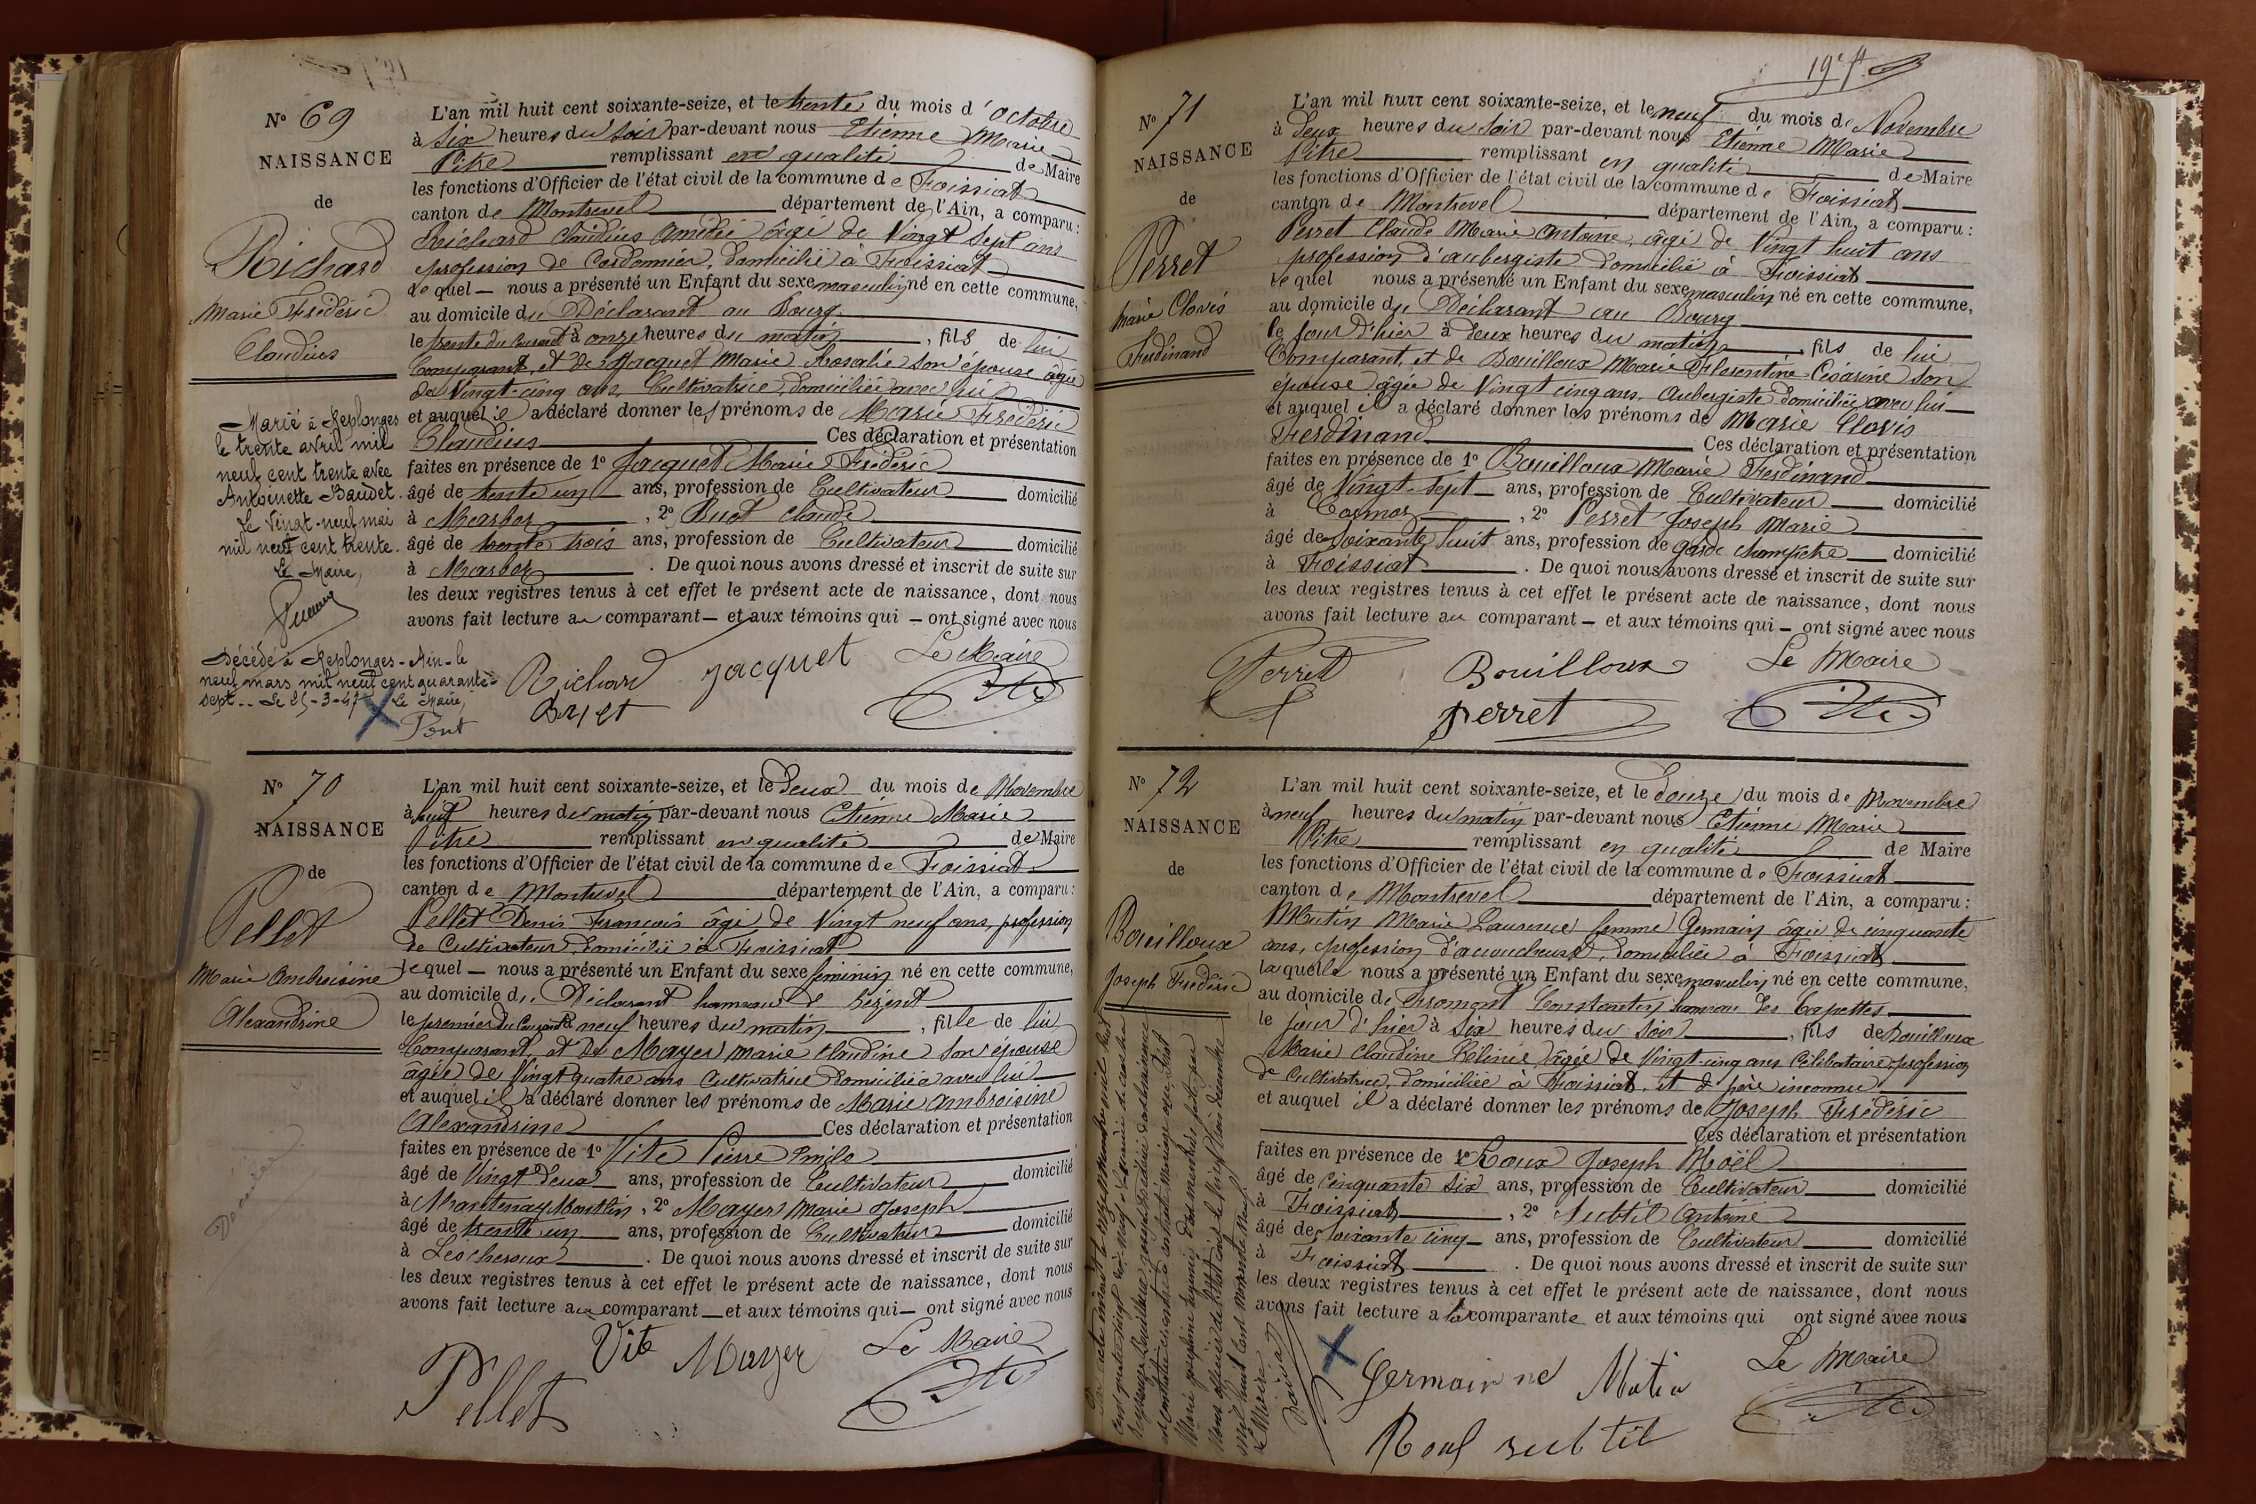 N° 69
NAISSANCE
de
Richard
Marie Frédéric
Claudius
Marié à Replonges
le trente avril mil
neuf cent trente avec
Antoinette Baudet.
le vingt-neuf mai
mil neuf cent trente.
Le Maire,
Décédé à Replonges - Ain - le
neuf mars mil neuf cent quarante-
sept. - Le 25-3-47 Le Maire,
Pont
L'an mil huit cent soixante-seize, et le trente du mois d'octobre
à six heures du soir par-devant nous Etienne Marie
Pitre remplissant en qualité de Maire
les fonctions d'Officier de l'état civil de la commune de Foissiat
canton de Montrevel département de l'Ain, a comparu :
Richard Claudius Amédée âgé de Vingt Sept ans
profession de Cordonnier, domicilié à Foissiat
Lequel nous a présenté un Enfant du sexe masculin né en cette commune,
au domicile du Déclarant au Bourg
le trente du Courant à onze heures du matin, fils de lui
Comparant, et de Jacquet Marie Rosalie son épouse âgée
de Vingt-cinq ans, Cultivatrice, domiciliée avec lui
et auquel il a déclaré donner les prénoms de Marie Frédéric
Claudius Ces déclaration et présentation
faites en présence de 1° Jacquet Marie Frédéric
âgé de trente un ans, profession de Cultivateur domicilié
à Marboz, 2° Buet Claude
âgé de trente trois ans, profession de Cultivateur domicilié
à Marboz. De quoi nous avons dressé et inscrit de suite sur
les deux registres tenus à cet effet le présent acte de naissance, dont nous
avons fait lecture au comparant et aux témoins qui ont signé avec nous
Richard Jacquet Le Maire
Buet Pitre
N° 70
NAISSANCE
de
Pellet
Marie Ambroisine
Alexandrine
L'an mil huit cent soixante-seize, et le deux du mois de Novembre
à huit heures du matin par-devant nous Etienne Marie
Pitre remplissant en qualité de Maire
les fonctions d'Officier de l'état civil de la commune de Foissiat
canton de Montrevel département de l'Ain, a comparu :
Pellet Denis François âgé de Vingt neuf ans, profession
de Cultivateur, domicilié à Foissiat
lequel nous a présenté un Enfant du sexe féminin né en cette commune,
au domicile du Déclarant hameau de
le premier du Courant à neuf heures du matin, fille de lui
Comparant, et de Mayer Marie Claudine son épouse
âgée de Vingt quatre ans Cultivatrice domiciliée avec lui
et auquel il a déclaré donner les prénoms de Marie Ambroisine
Alexandrine Ces déclaration et présentation
faites en présence de 1° Vite Pierre Emile
âgé de Vingt deux ans, profession de Cultivateur domicilié
à Mantenay Montlin, 2° Mayer Marie Joseph
âgé de trente un ans, profession de Cultivateur domicilié
à Lescheroux. De quoi nous avons dressé et inscrit de suite sur
les deux registres tenus à cet effet le présent acte de naissance, dont nous
avons fait lecture au comparant et aux témoins qui ont signé avec nous
Vite Mayer Le Maire
Pellet Pitre
19e f.
N° 71
NAISSANCE
de
Perret
Marie Clovis
Ferdinand
L'an mil huit cent soixante-seize, et le neuf du mois de Novembre
à deux heures du soir par-devant nous Etienne Marie
Pitre remplissant en qualité de Maire
les fonctions d'Officier de l'état civil de la commune de Foissiat
canton de Montrevel département de l'Ain, a comparu :
Perret Claude Marie Antoine, âgé de Vingt huit ans
profession d'aubergiste domicilié à Foissiat
lequel nous a présenté un Enfant du sexe masculin né en cette commune,
au domicile du Déclarant au Bourg
le jour d'hier à deux heures du matin, fils de lui
Comparant, et de Bouilloux Marie Florentine Césarine son
épouse âgée de Vingt cinq ans, Aubergiste domiciliée avec lui
et auquel il a déclaré donner les prénoms de Marie Clovis
Ferdinand Ces déclaration et présentation
faites en présence de 1° Bouilloux Marie Ferdinand
âgé de Vingt-sept ans, profession de Cultivateur domicilié
à Cormoz, 2° Perret Joseph Marie
âgé de soixante huit ans, profession de garde champêtre domicilié
à Foissiat. De quoi nous avons dressé et inscrit de suite sur
les deux registres tenus à cet effet le présent acte de naissance, dont nous
avons fait lecture au comparant et aux témoins qui ont signé avec nous
Perret Bouilloux Le Maire
perret Pitre
N° 72
NAISSANCE
de
Bouilloux
Joseph Frédéric
L'an mil huit cent soixante-seize, et le douze du mois de Novembre
à neuf heures du matin par-devant nous Etienne Marie
Pitre remplissant en qualité de Maire
les fonctions d'Officier de l'état civil de la commune de Foissiat
canton de Montrevel département de l'Ain, a comparu :
Mutin Marie Laurence femme Germain âgée de cinquante
ans, profession d'accoucheuse, domiciliée à Foissiat
laquelle nous a présenté un Enfant du sexe masculin né en cette commune,
au domicile de Fromont Constantin hameau des
le jour d'hier à six heures du soir, fils de Bouilloux
Marie Claudine Mélinie, âgée de Vingt-cinq ans Célibataire, profession
de Cultivatrice, domiciliée à Foissiat, et de père inconnu
et auquel il a déclaré donner les prénoms de Joseph Frédéric
Ces déclaration et présentation
faites en présence de 1° Roux Joseph Noël
âgé de cinquante six ans, profession de Cultivateur domicilié
à Foissiat, 2° Subtil Antoine
âgé de soixante cinq ans, profession de Cultivateur domicilié
à Foissiat. De quoi nous avons dressé et inscrit de suite sur
les deux registres tenus à cet effet le présent acte de naissance, dont nous
avons fait lecture à la comparante et aux témoins qui ont signé avec nous
Germain née Mutin Le Maire
Roux subtil Pitre